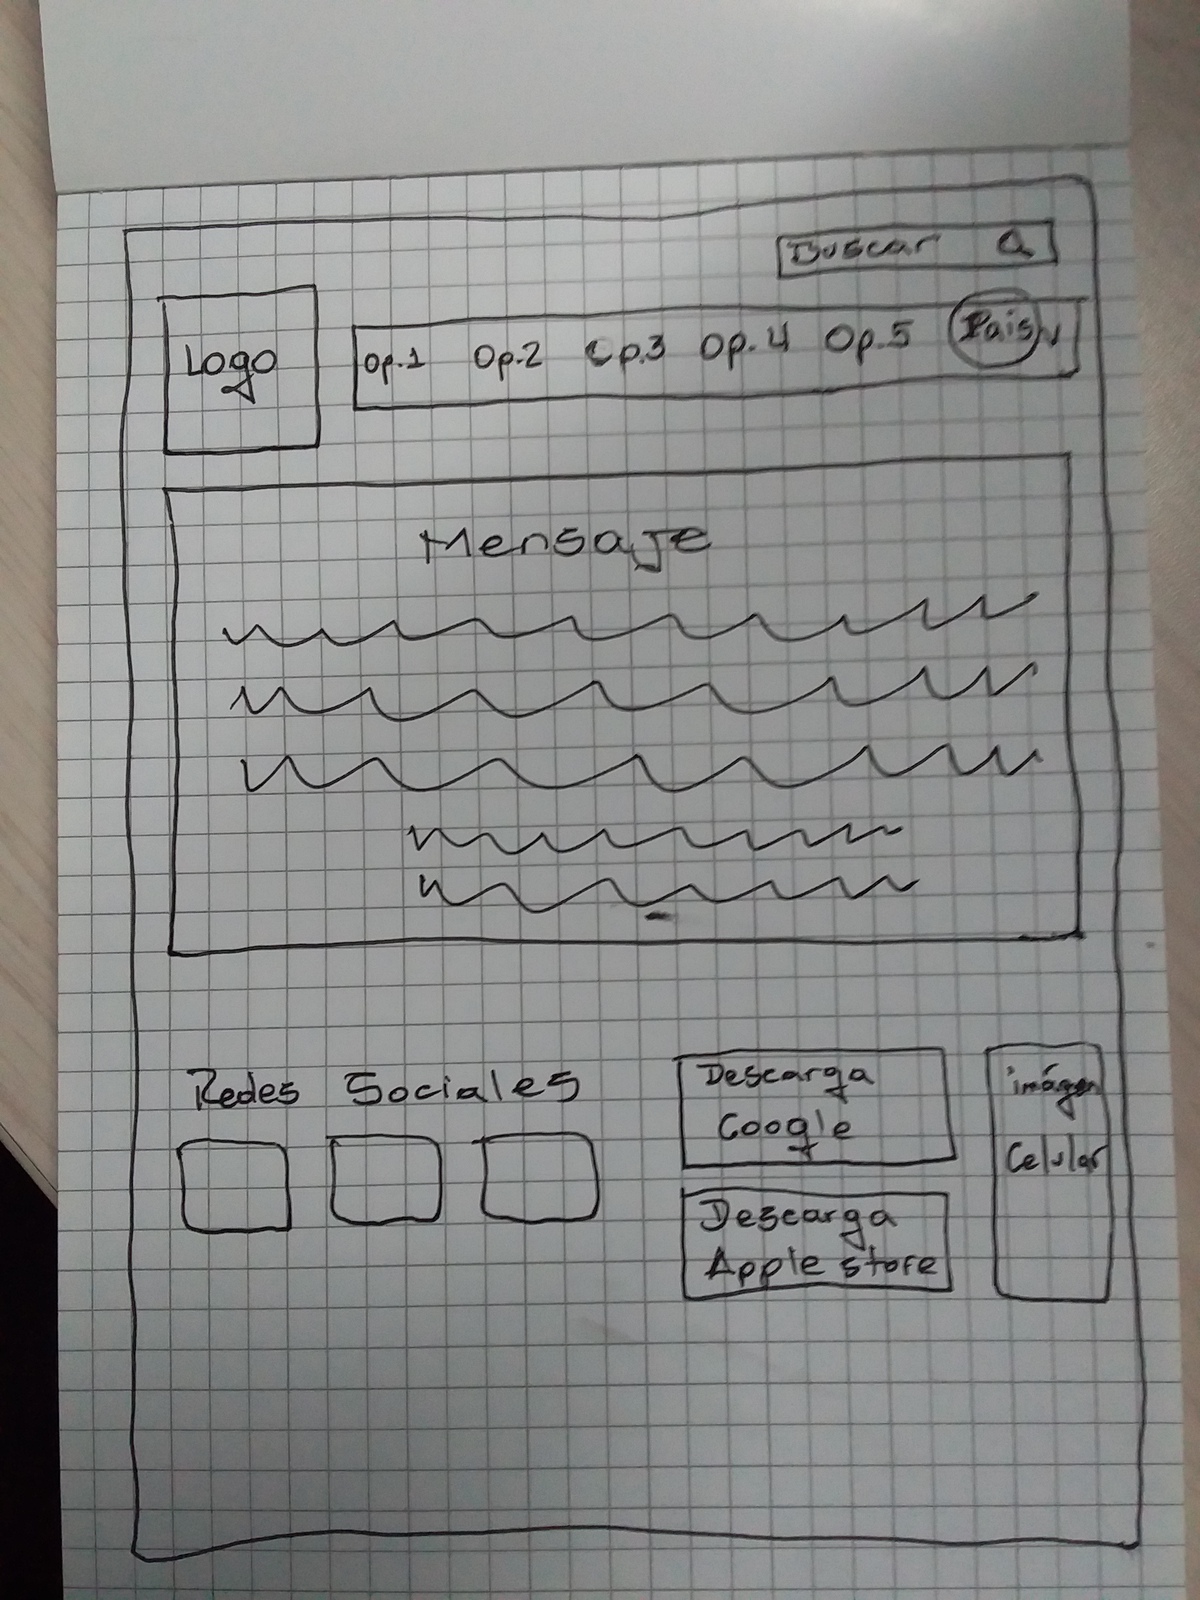 Buscar
Logo
Op.1 Op.2 Op.3 Op.4 Op.5 Pais
Mensaje
Redes Sociales
Descarga
Google
Descarga
Apple store
imágen
Celular